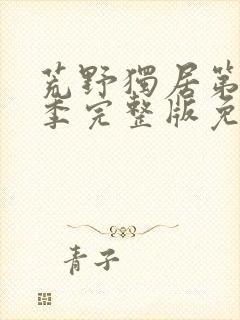 荒野獨居第
季完整版免
青子